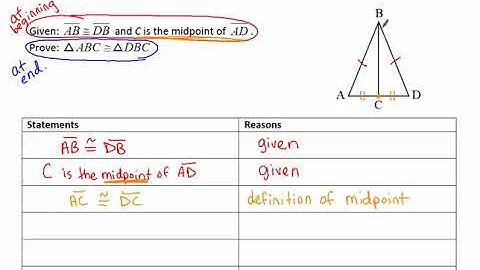 at
beginning
Given: AB ≅ DB and C is the midpoint of AD.
Prove: △ABC ≅ △DBC
at
end.
B
A
C
D
Statements Reasons
AB ≅ DB given
C is the midpoint of AD given
AC ≅ DC definition of midpoint